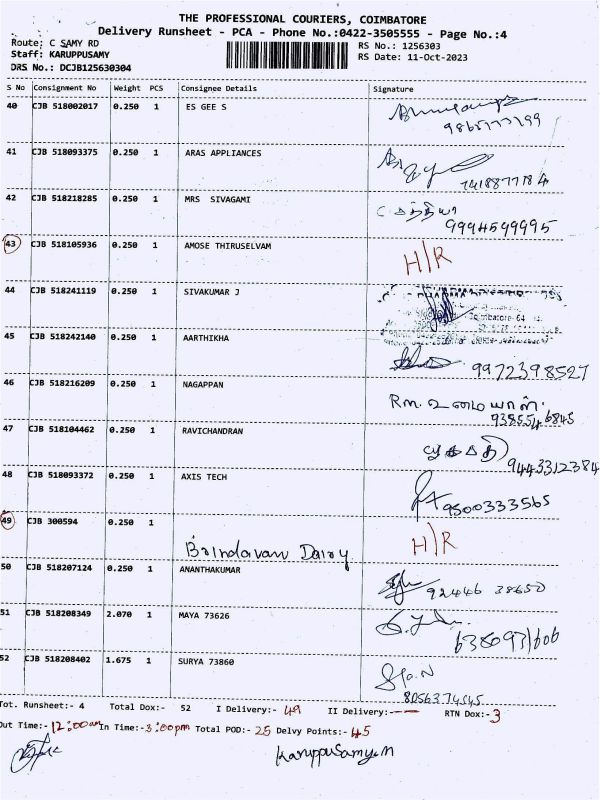 THE PROFESSIONAL COURIERS, COIMBATORE
Delivery Runsheet - PCA - Phone No.:0422-3505555 - Page No.:4
Route: C SAMY RD
Staff: KARUPPUSAMY
DRS No.: DCJB125630304
RS No.: 1256303
RS Date: 11-Oct-2023
S No Consignment No Weight PCS Consignee Details Signature
40 CJB 518002017 0.250 1 ES GEE S
41 CJB 518093375 0.250 1 ARAS APPLIANCES
42 CJB 518218285 0.250 1 MRS SIVAGAMI
9994599995
43 CJB 518105936 0.250 1 AMOSE THIRUSELVAM H/R
44 CJB 518241119 0.250 1 SIVAKUMAR J
45 CJB 518242140 0.250 1 AARTHIKHA
9972398527
46 CJB 518216209 0.250 1 NAGAPPAN
Rm. உமையாள்.
47 CJB 518104462 0.250 1 RAVICHANDRAN
9443312384
48 CJB 518093372 0.250 1 AXIS TECH
9500333565
49 CJB 300594 0.250 1 H/R
Brindavan Dairy
50 CJB 518207124 0.250 1 ANANTHAKUMAR
92446 38650
51 CJB 518208349 2.070 1 MAYA 73626
52 CJB 518208402 1.675 1 SURYA 73860
Tot. Runsheet:- 4 Total Dox:- 52 I Delivery:- 49 II Delivery:- — RTN Dox:-3
Out Time:- 12:00am In Time:-3:00pm Total POD:- 25 Delvy Points:- 45
Karuppusamy.M